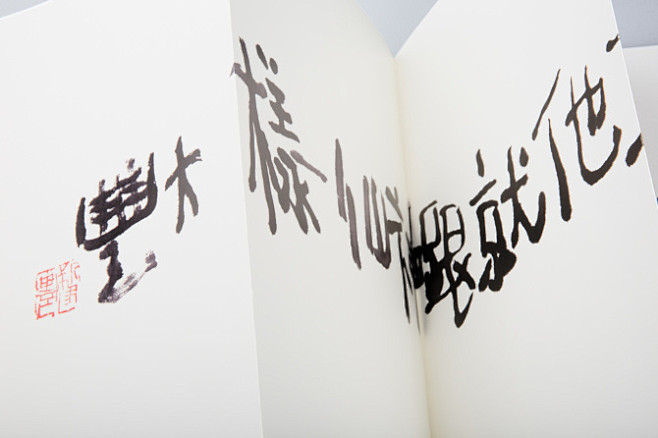 他就跟仙樣
大豐